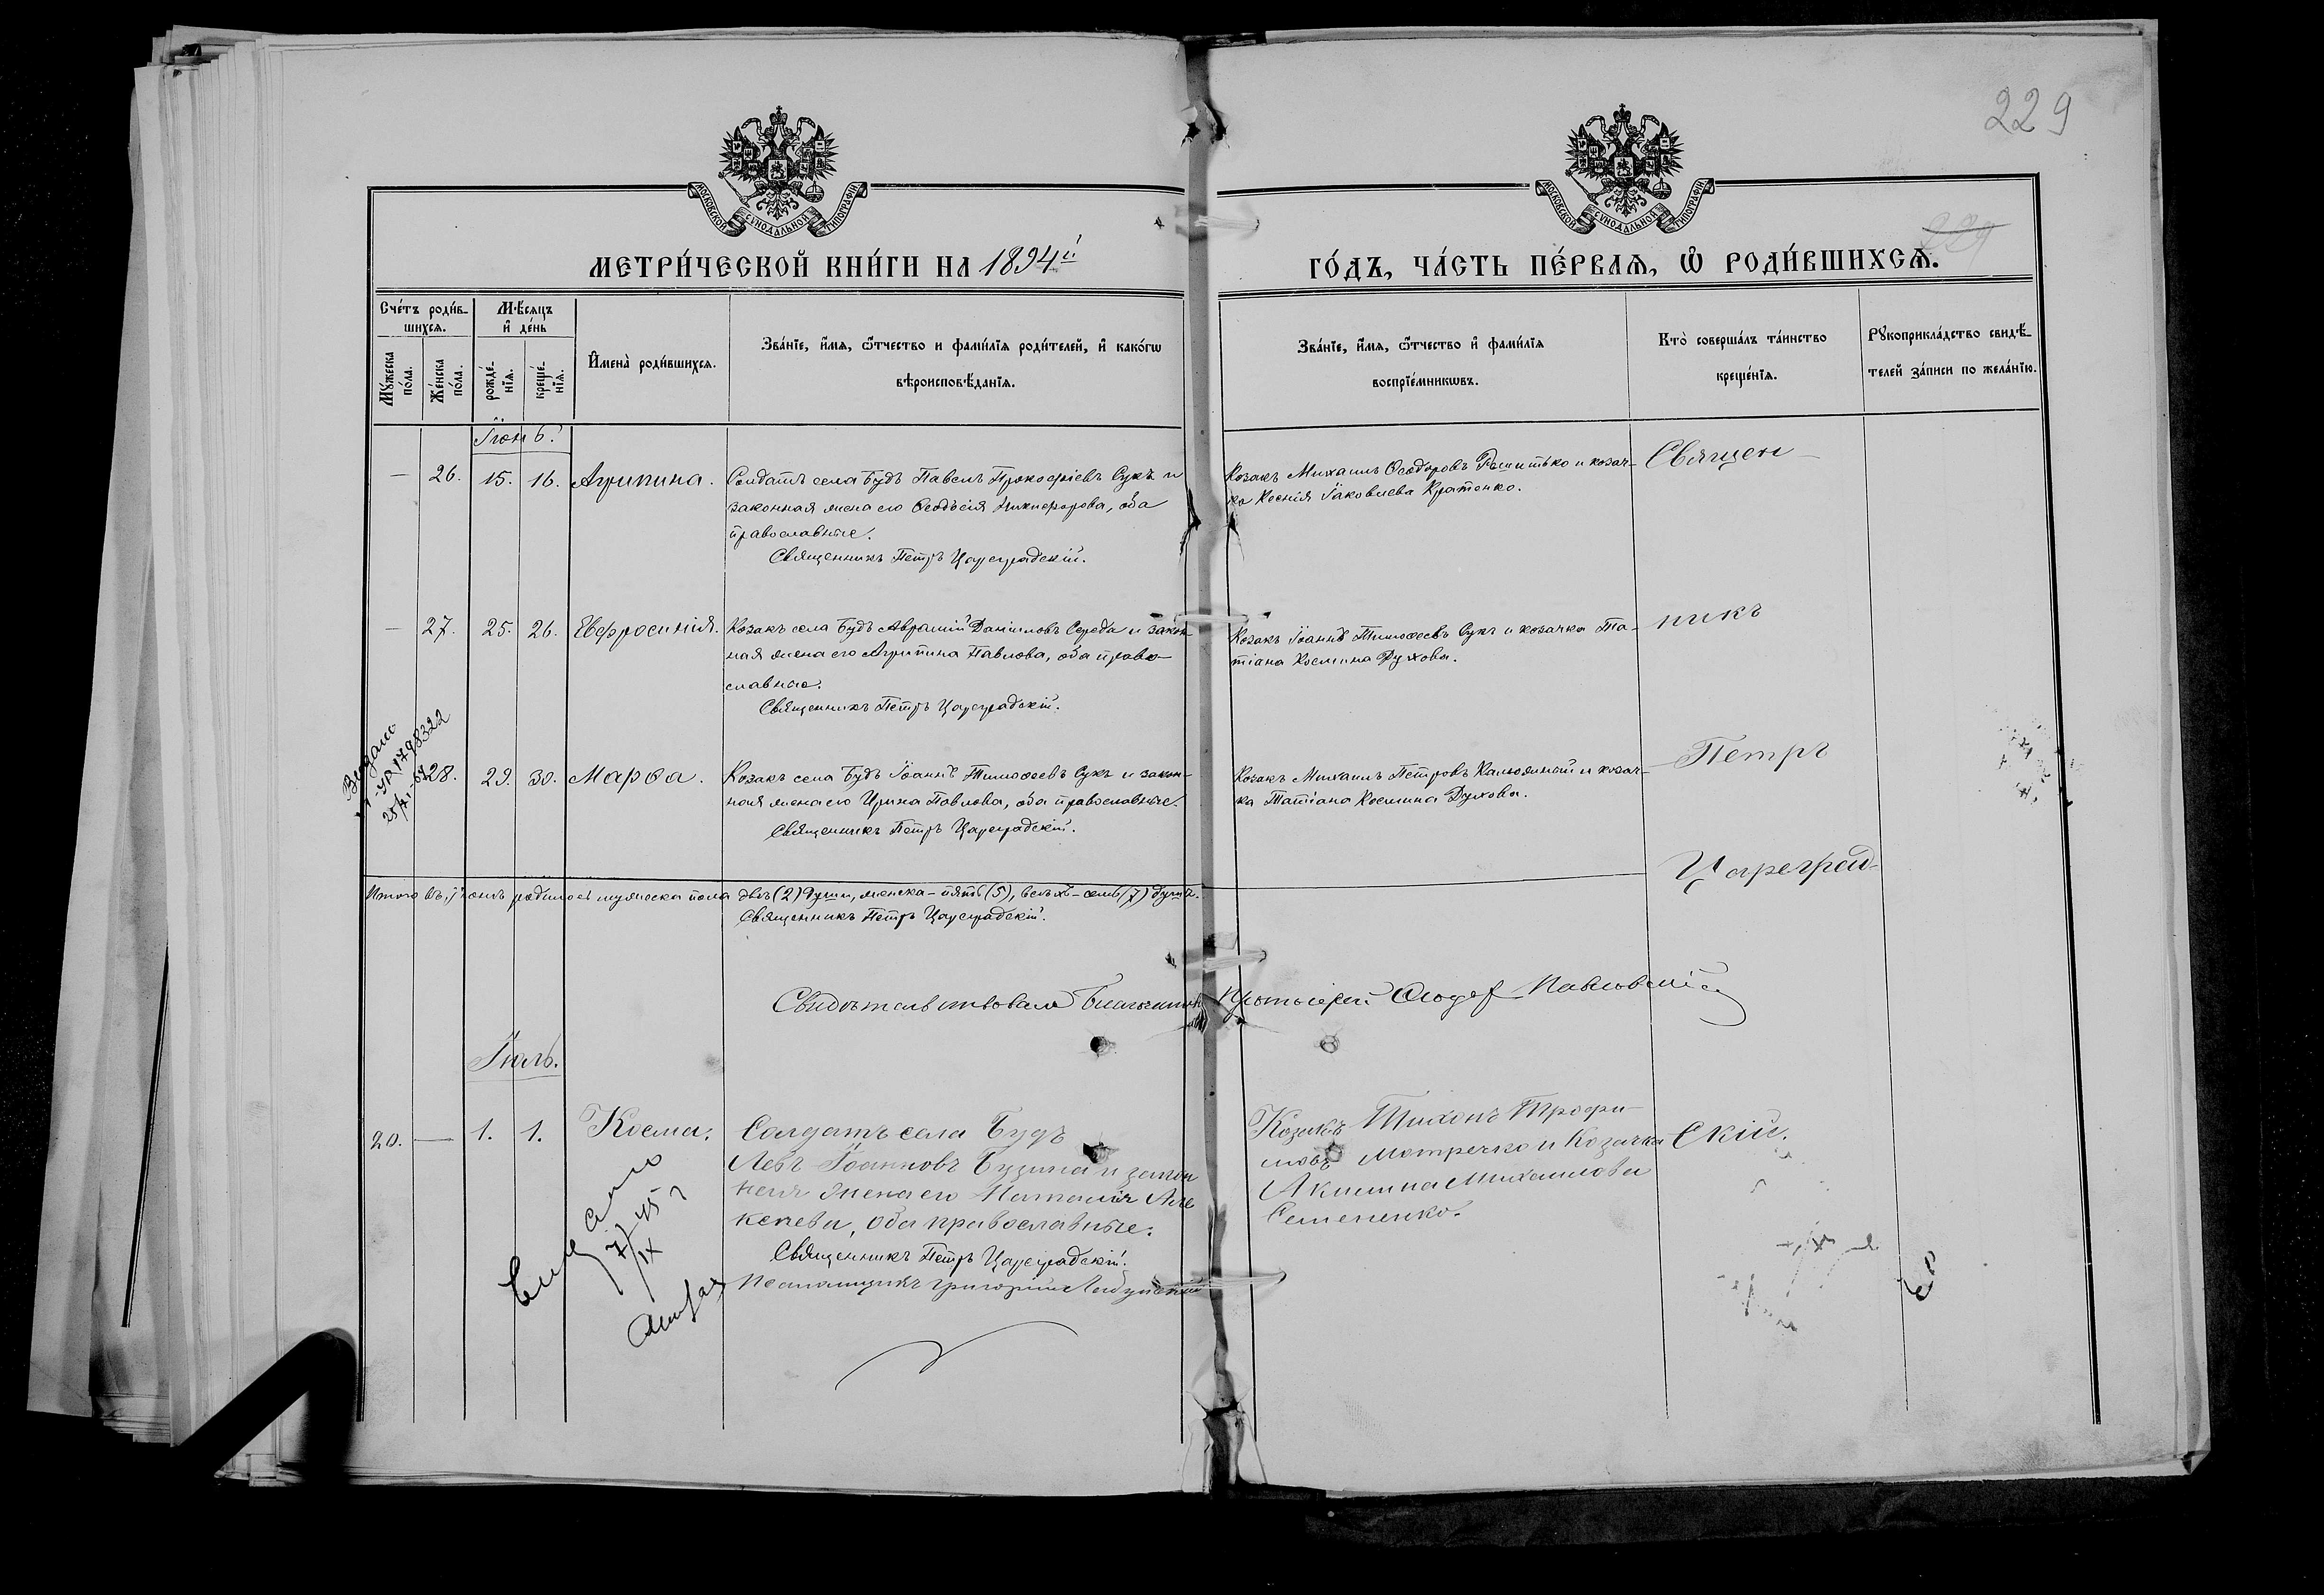 229
МОСКОВСКОЙ СѴНОДАЛЬНОЙ ТИПОГРАФІИ
МОСКОВСКОЙ СѴНОДАЛЬНОЙ ТИПОГРАФІИ
229
МЕТРИ́ЧЕСКОЙ КНИ́ГИ НА 1894й
ГО́ДЪ, ЧА́СТЬ ПЕ́РВАѦ, Ѽ РОДИ́ВШИХСѦ.
Сче́тъ роди́в-
шихсѧ.
Мѣ́сѧцъ
и҆ де́нь
Мꙋ́жеска
по́ла.
Же́нска
по́ла.
рожде́-
нїѧ.
креще́-
нїѧ.
И҆мена̀ роди́вшихсѧ.
Зва́нїе, и҆́мѧ, ѻ҆́тчество и фами́лїѧ роди́телей, и҆ како́гѡ
вѣроисповѣ́данїѧ.
Зва́нїе, и҆́мѧ, ѻ҆́тчество и҆ фами́лїѧ
воспрїе́мникѡвъ.
Кто̀ соверша́лъ та́инство
креще́нїѧ.
Рꙋкоприкла́дство свидѣ́-
телей за́писи по жела́нїю.
Іюнь.
— 26. 15. 16. Агрипина. Солдатъ села Будъ Павелъ Прокофіевъ Сукъ и
законная жена его Ѳеодосія Никифорова, оба
православные.
Священникъ Петръ Цареградскій.
Козакъ Михаилъ Ѳеодоровъ и козач-
ка Ксенія Іаковлева Кратенко.
Священ-
— 27. 25. 26. Евфросинія. Козакъ села Будъ Аврамій Даніиловъ Середа и закон-
ная жена его Агрипина Павлова, оба право-
славные.
Священникъ Петръ Цареградскій.
Козакъ Іоаннъ Тимоѳеевъ Сукъ и козачка Та-
тіана Космина Духова.
никъ
Выдано
1-УР 1798322
28. 29. 30. Марѳа. Козакъ села Будъ Іоаннъ Тимоѳеевъ Сукъ и закон-
ная жена его Ирина Павлова, оба православные.
Священникъ Петръ Цареградскій.
Козакъ Михаилъ Петровъ и козач-
ка Татіана Космина Духова.
Петръ
Цареград-
Итого въ Іюнѣ родилось мужеска пола двѣ (2) души, женска – пять (5), всѣхъ – семь (7) душъ.
Священникъ Петръ Цареградскій.
Свидѣтельствовалъ Благочинный Протоіерей Павловскій
Іюль.
20. — 1. 1. Косма. Солдатъ села Будъ
Левъ Іоанновъ Бузина и закон
ная жена его Наталія Але
ксѣева, оба православные.
Священникъ Петръ Цареградскій.
Псаломщикъ Григорій
Козакъ Тихонъ Трофи-
мовъ Мотречко и Козачка
Акилина Михаилова
Семененко.
скій.
7/IX 45 г